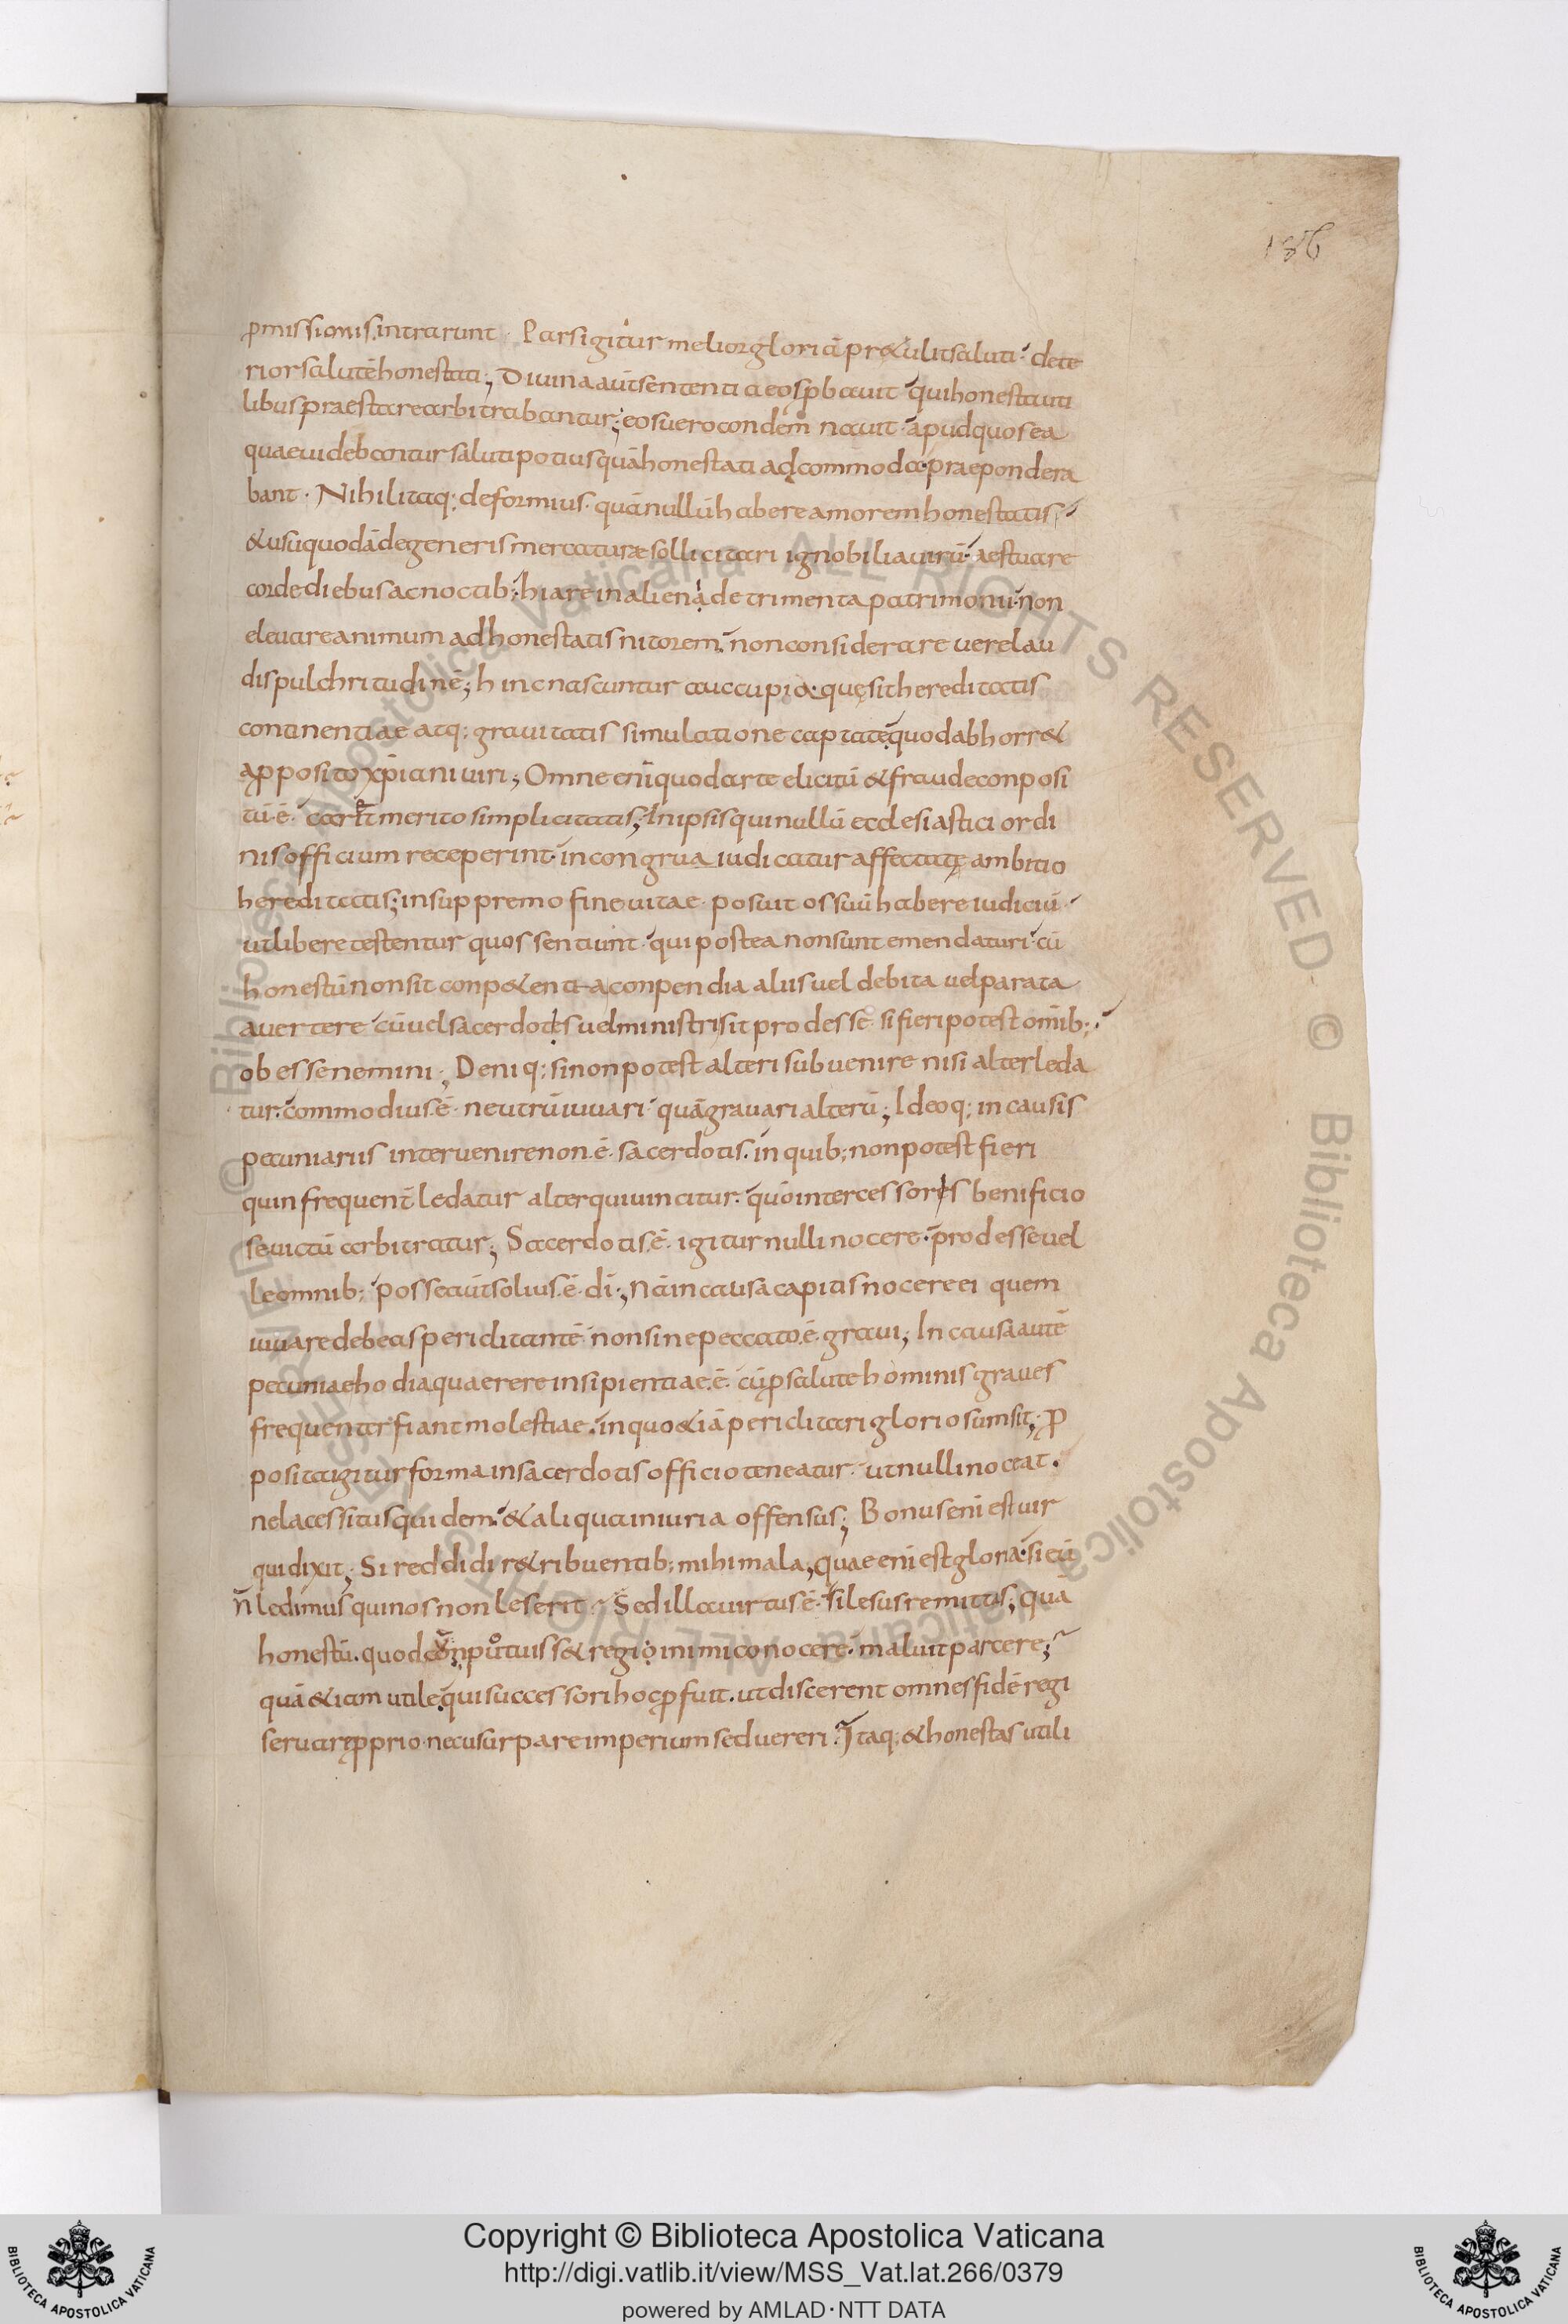 186
ꝓmissionis intrarunt · Pars igitur melior gloriā pr&ulit saluti · dete
rior salutē honestati ; Diuina aūt sententia eos ꝓbauit qui honesta uti
libus praestare arbitrabantur ; eos uero condemnauit apud quos ea
quae uidebantur saluti potius quā honestati adcommoda praepondera
bant · Nihil itaq; deformius · quā nullū habere amorem honestatis
& usu quodā degeneris mercaturæ sollicitari ignobili auirū · aestuare
corde diebus ac noctib; hiare in aliena detrimenta patrimonii non
eleuare animum ad honestatis nitorem non considerare uere lau
dis pulchritudinē ; hinc nascuntur aucupio quęsit hereditatis
continentiae atq; grauitatis simulatione captate quod abhorr&
a ꝓposito xp̄iani uiri ; Omne enī quod arte elicitū & fraude conposi
tū ·ē· car& merito simplicitatis ; In ipsis qui nullū ecclesiastici ordi
nis officium receperint incongrua iudicatur affectatę ambitio
hereditatis ; in suppremo fine uitae positos suū habere iudiciū
ut libere testentur quos sentiunt qui postea non sunt emendaturi cū
honestū non sit conp&entia conpendia aliis uel debita uel parata
auertere cū uel sacerdotis uel ministri sit prodesse si fieri potest om̄ib;
obesse nemini ; Deniq; si non potest alteri subuenire nisi alter leda
tur · commodius ·ē· neutrū iuuari quā grauari alterū ; Ideoq; in causis
pecuniariis interuenire non ·ē· sacerdotis in quib; non potest fieri
quin frequent̄ ledatur alter qui uincitur · quō intercessoris benificio
se uictū arbitratur ; Sacerdotis ·ē· igitur nulli nocere · prodesse uel
le omnib; posse aūt solius ·ē· dī ; Nā in causa capitis nocere ei quem
iuuare debeas periclitantē non sine peccato ·ē· graui ; In causa autē
pecuniae hodia quaerere insipientiae ·ē· cū ꝓ salute hominis graues
frequenter fiant molestiae in quo &iā periclitari gloriosum sit ; ꝓ
posita igitur forma in sacerdotis officio teneatur ut nulli noceat ·
ne lacessitus quidem & aliqua iniuria offensus ; Bonus enī est uir
qui dixit ; Si reddidi r&ribuentib; mihi mala ; quae enī est gloria si eū
n̄ ledimus qui nos non leserit · Sed illa uirtus ·ē· si lesus remittas ; quā
honestū · quod cū potuiss& regio inimico nocere maluit parcere ;
quā &iam utile qui successori hoc ꝓfuit · ut discerent omnes fidē regi
seruare ꝓprio nec usurpare imperium sed uereri · Itaq; & honestas utili
Copyright © Biblioteca Apostolica Vaticana
http://digi.vatlib.it/view/MSS_Vat.lat.266/0379
powered by AMLAD·NTT DATA